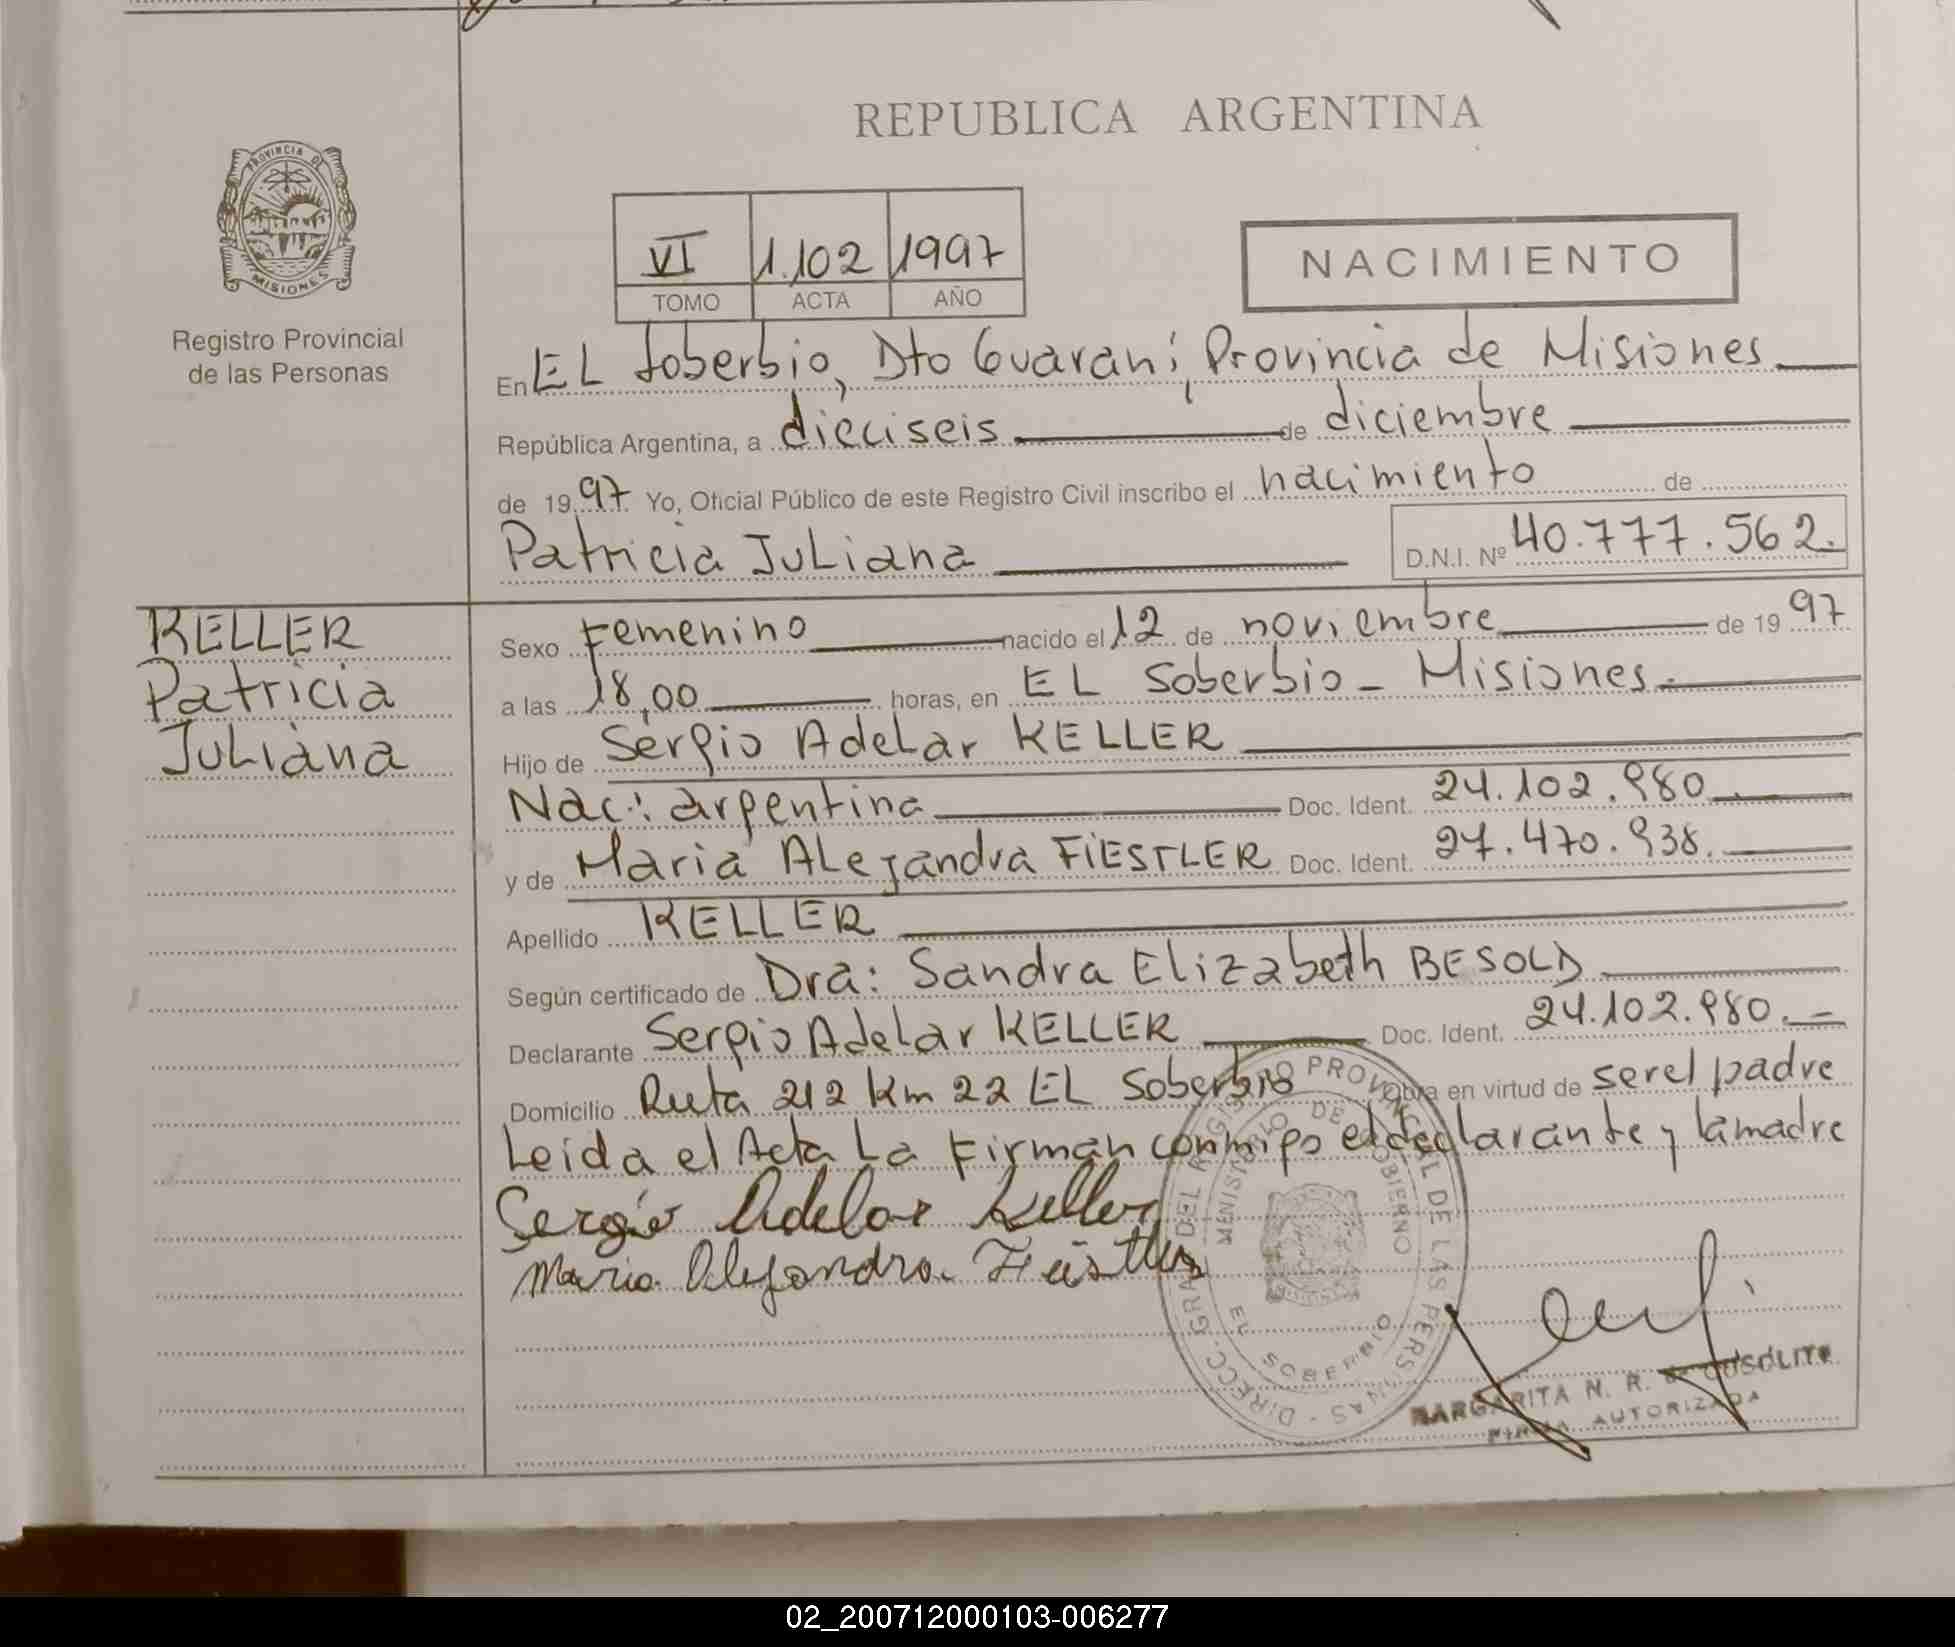 REPUBLICA ARGENTINA
PROVINCIA DE
MISIONES
Registro Provincial
de las Personas
VI 1.102 1997
TOMO ACTA AÑO
NACIMIENTO
En EL Soberbio, Dto Guaraní, Provincia de Misiones
República Argentina, a dieciseis de diciembre
de 1997 Yo, Oficial Público de este Registro Civil inscribo el nacimiento de
Patricia Juliana D.N.I. Nº 40.777.562.
KELLER
Patricia
Juliana
Sexo Femenino nacido el 12 de noviembre de 1997
a las 18,00 horas, en EL Soberbio - Misiones.
Hijo de Sergio Adelar KELLER
Nac: argentina Doc. Ident. 24.102.980
y de Maria Alejandra FiESTLER Doc. Ident. 27.470.938.
Apellido KELLER
Según certificado de Dra: Sandra Elizabeth BESOLD
Declarante Sergio Adelar KELLER Doc. Ident. 24.102.980.
Domicilio Ruta 212 Km 22 EL Soberbio Obra en virtud de ser el padre
Leida el Acta La Firman conmigo el declarante y la madre
Sergio Adelar Keller
Maria Alejandra Fiestler
DIRECC. GRAL DEL REGISTRO PROVINCIAL DE LAS PERSONAS
MINISTERIO DE GOBIERNO
EL SOBERBIO
MARGARITA N. R. de
FIRMA AUTORIZADA
02_200712000103-006277